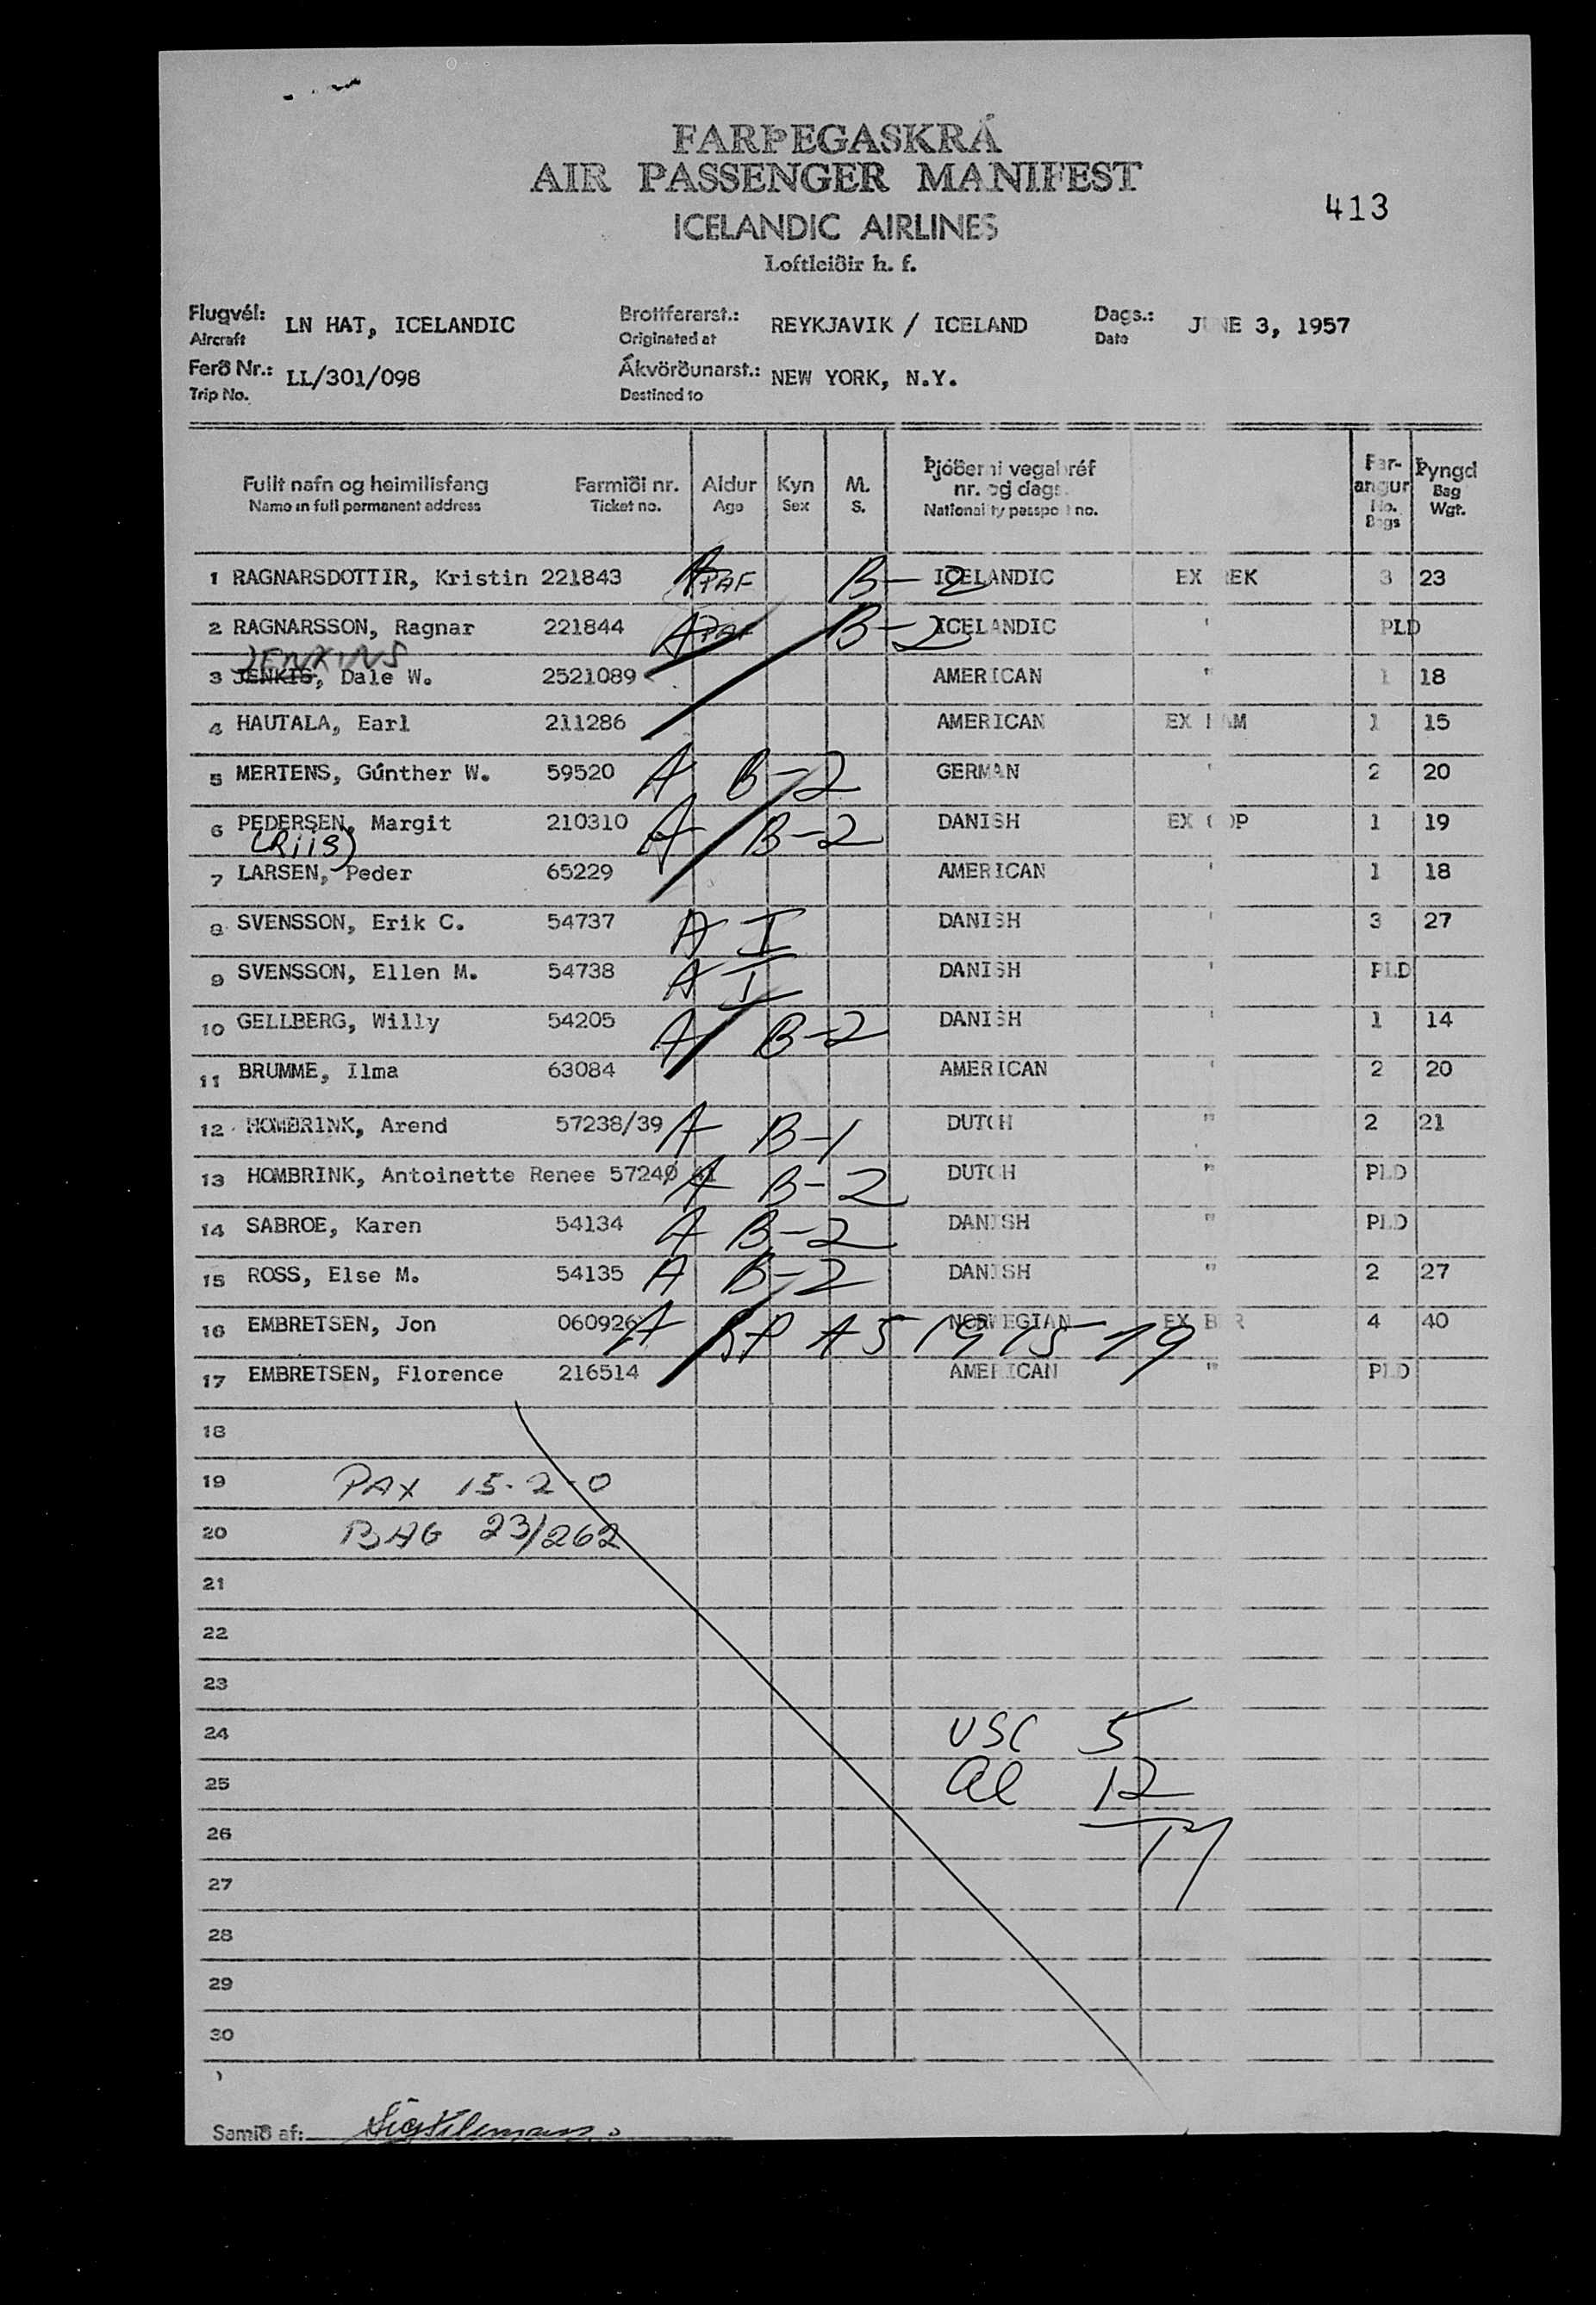 FARÞEGASKRÁ
AIR PASSENGER MANIFEST
413
ICELANDIC AIRLINES
Loftleiðir h. f.
Flugvél: LN HAT, ICELANDIC Brottfararst.: REYKJAVIK / ICELAND Dags.: JUNE 3, 1957
Aircraft Originated at Date
Ferð Nr.: LL/301/098 Ákvörðunarst.: NEW YORK, N.Y.
Trip No. Destined to
Fullt nafn og heimilisfang Farmiði nr. Aldur Kyn M. Þjóðerni vegabréf nr. og dags. Far-angur Þyngd
Name in full permanent address Ticket no. Age Sex S. Nationality passport no. No. Bags Bag Wgt.
1 RAGNARSDOTTIR, Kristin 221843 A PAF B-2 ICELANDIC EX REK 3 23
2 RAGNARSSON, Ragnar 221844 A PAF B-2 ICELANDIC " PLD
JENKINS
3 JENKIS, Dale W. 2521089 AMERICAN " 1 18
4 HAUTALA, Earl 211286 AMERICAN EX HAM 1 15
5 MERTENS, Gúnther W. 59520 A B-2 GERMAN " 2 20
6 PEDERSEN, Margit 210310 A B-2 DANISH EX COP 1 19
(Riis)
7 LARSEN, Peder 65229 AMERICAN " 1 18
8 SVENSSON, Erik C. 54737 A I DANISH " 3 27
9 SVENSSON, Ellen M. 54738 A I DANISH " PLD
10 GELLBERG, Willy 54205 A B-2 DANISH " 1 14
11 BRUMME, Ilma 63084 AMERICAN " 2 20
12 HOMBRINK, Arend 57238/39 A B-1 DUTCH " 2 21
13 HOMBRINK, Antoinette Renee 57240 41 A B-2 DUTCH " PLD
14 SABROE, Karen 54134 A B-2 DANISH " PLD
15 ROSS, Else M. 54135 A B-2 DANISH " 2 27
16 EMBRETSEN, Jon 060926 A RP A5 1915 19 NORWEGIAN EX BER 4 40
17 EMBRETSEN, Florence 216514 AMERICAN " PLD
18
19 PAX 15-2-0
20 BAG 23/262
21
22
23
24 USC 5
25 al 12
26 17
27
28
29
30
Samið af: